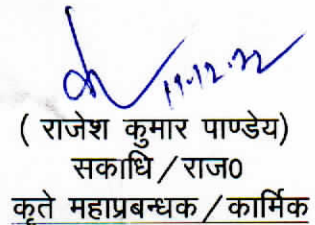 19.12.22
( राजेश कुमार पाण्डेय)
सकाधि/राज0
कृते महाप्रबन्धक/कार्मिक